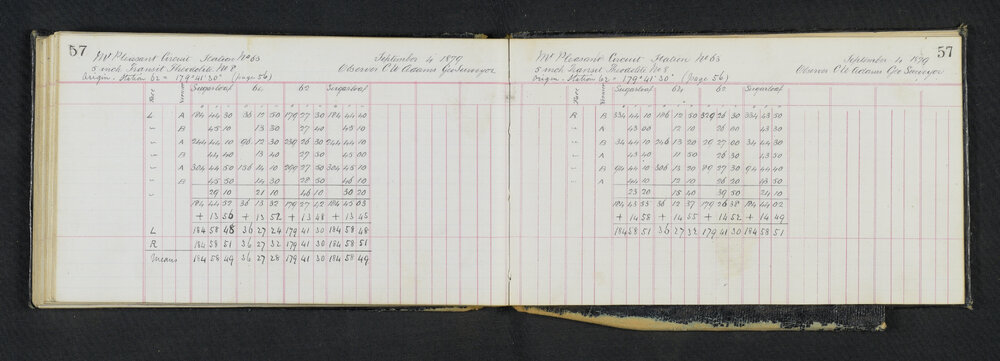 57
Mt Pleasant Circuit Station No 63 September 4 1879
5 inch Transit Theodolite No 8 Observer C W Adams Geo Surveyor
Origin. Station 62 = 179° 41' 30" (page 56)
Face Vernier Sugarloaf 64 62 Sugarloaf
L A 184 44 30 36 12 50 179 27 30 184 44 40
B 45 10 13 30 27 40 45 10
A 244 44 10 96 12 30 239 26 30 244 44 10
B 44 40 13 40 27 30 45 00
A 304 44 50 156 14 10 299 27 50 304 45 10
B 45 50 14 30 28 50 46 10
29 10 21 10 46 10 30 20
184 44 52 36 13 32 179 27 42 184 45 03
+ 13 56 + 13 52 + 13 48 + 13 45
L 184 58 48 36 27 24 179 41 30 184 58 48
R 184 58 51 36 27 32 179 41 30 184 58 51
Means 184 58 49 36 27 28 179 41 30 184 58 49
57
Mt Pleasant Circuit Station No 63 September 4 1879
5 inch Transit Theodolite No 8 Observer C W Adams Geo Surveyor
Origin. Station 62 = 179° 41' 30" (page 56)
Face Vernier Sugarloaf 64 62 Sugarloaf
R B 334 44 10 186 12 50 329 26 30 334 43 50
A 43 00 12 10 26 00 43 30
B 34 44 10 246 13 20 29 27 00 34 44 30
A 43 40 11 50 26 30 43 50
B 94 44 10 306 13 20 89 27 30 94 44 40
A 44 10 12 10 26 20 43 50
23 20 15 40 39 50 24 10
184 43 53 36 12 37 179 26 38 184 44 02
+ 14 58 + 14 55 + 14 52 + 14 49
184 58 51 36 27 32 179 41 30 184 58 51